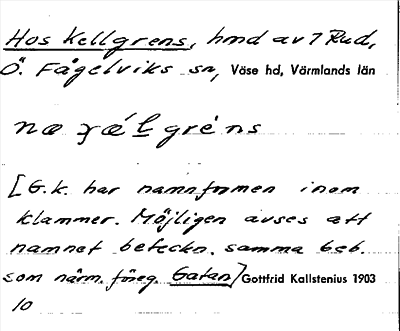 Hos Kellgrens, hmd av 7 Rud,
Ö. Fågelviks sn, Väse hd, Värmlands län
[G.K. har namnformen inom
klammer. Möjligen avses att
namnet beteckn. samma beb.
som närm. föreg. Gatan] Gottfrid Kallstenius 1903
10